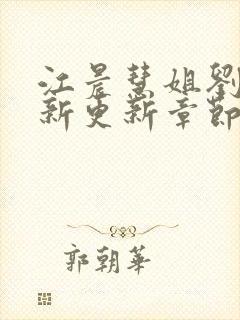 江晨慧姐劉
新更新章節
郭朝華